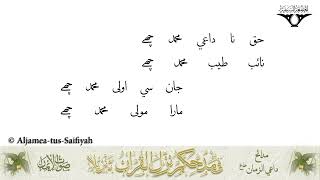 حق نا داعي محمد چھے
نائب طيب محمد چھے
جان سي اولى محمد چھے
مارا مولى محمد چھے
© Aljamea-tus-Saifiyah
مدائح
داعي الزمان